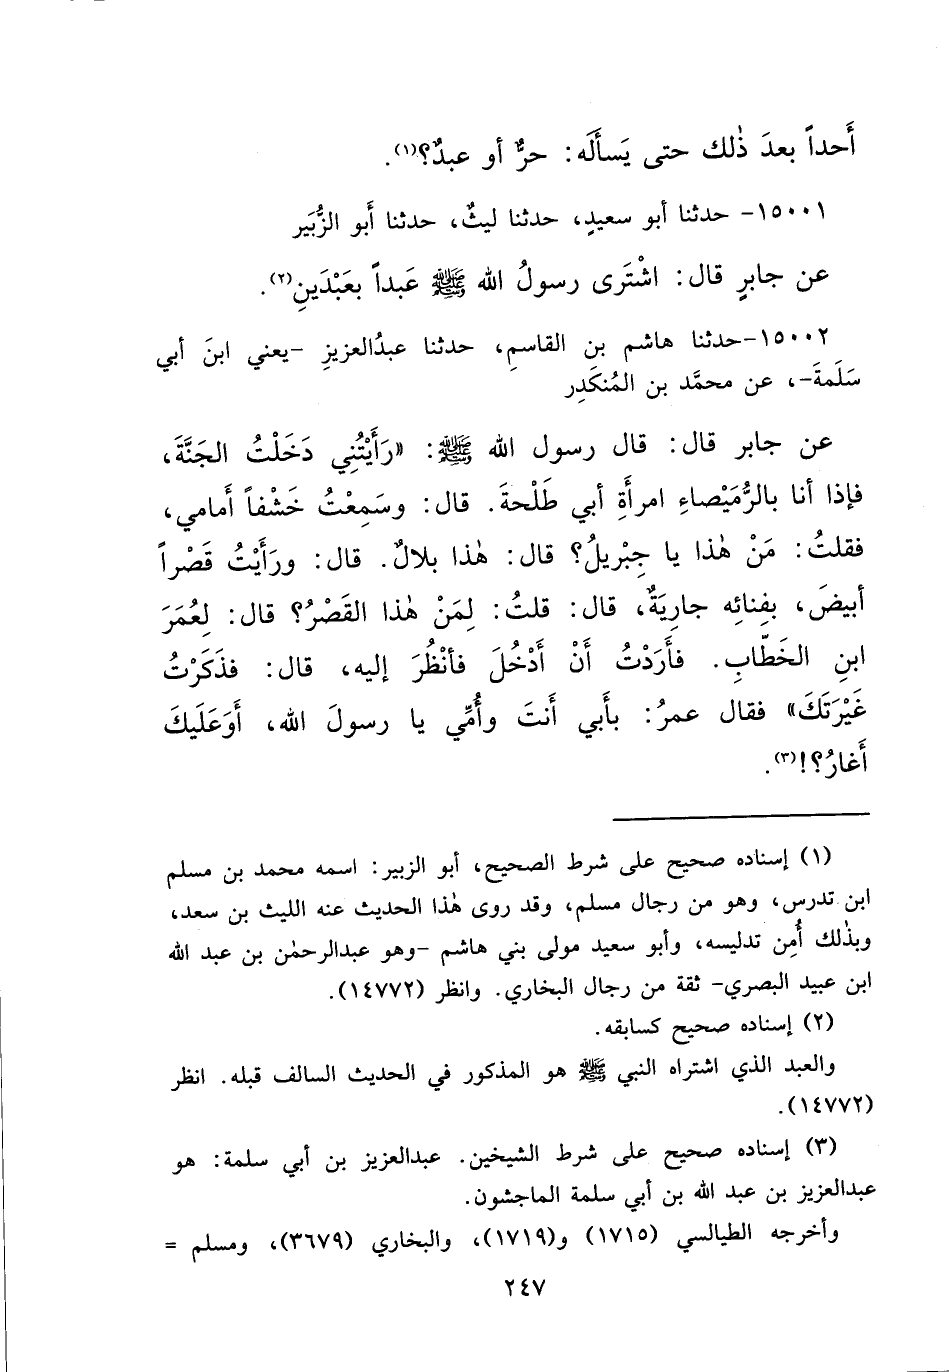 أَحداً بعدَ ذٰلك حتى يَسأَلَه: حرٌّ أو عبدٌ؟(١).
١٥٠٠١- حدثنا أبو سعيدٍ، حدثنا ليثٌ، حدثنا أَبو الزُّبَير
عن جابرٍ قال: اشْتَرى رسولُ الله ﷺ عَبداً بعَبْدَينِ(٢).
١٥٠٠٢-حدثنا هاشم بن القاسمِ، حدثنا عبدُالعزيزِ -يعني ابنَ أبي
سَلَمةَ-، عن محمَّد بن المُنكَدِر
عن جابر قال: قال رسول الله ﷺ: «رَأَيْتُني دَخَلْتُ الجَنَّةَ،
فإذا أنا بالرُّمَيْصاءِ امرأَةِ أبي طَلْحةَ. قال: وسَمِعْتُ خَشْفاً أَمامي،
فقلتُ: مَنْ هٰذا يا جِبْريلُ؟ قال: هٰذا بلالٌ. قال: ورَأَيْتُ قَصْراً
أبيضَ، بفِنائِه جاريَةٌ، قال: قلتُ: لِمَنْ هٰذا القَصْرُ؟ قال: لِعُمَرَ
ابنِ الخَطّابِ. فأَرَدْتُ أَنْ أَدْخُلَ فأنْظُرَ إليه، قال: فذَكَرْتُ
غَيْرَتَكَ» فقال عمرُ: بأَبي أَنتَ وأُمِّي يا رسولَ الله، أوَعَلَيكَ
أَغارُ؟!(٣).
(١) إسناده صحيح على شرط الصحيح، أبو الزبير: اسمه محمد بن مسلم
ابن تدرس، وهو من رجال مسلم، وقد روى هٰذا الحديث عنه الليث بن سعد،
وبذٰلك أُمِن تدليسه، وأبو سعيد مولى بني هاشم -وهو عبدالرحمٰن بن عبد الله
ابن عبيد البصري- ثقة من رجال البخاري. وانظر (١٤٧٧٢).
(٢) إسناده صحيح كسابقه.
والعبد الذي اشتراه النبي ﷺ هو المذكور في الحديث السالف قبله. انظر
(١٤٧٧٢).
(٣) إسناده صحيح على شرط الشيخين. عبدالعزيز بن أبي سلمة: هو
عبدالعزيز بن عبد الله بن أبي سلمة الماجشون.
وأخرجه الطيالسي (١٧١٥) و(١٧١٩)، والبخاري (٣٦٧٩)، ومسلم =
٢٤٧